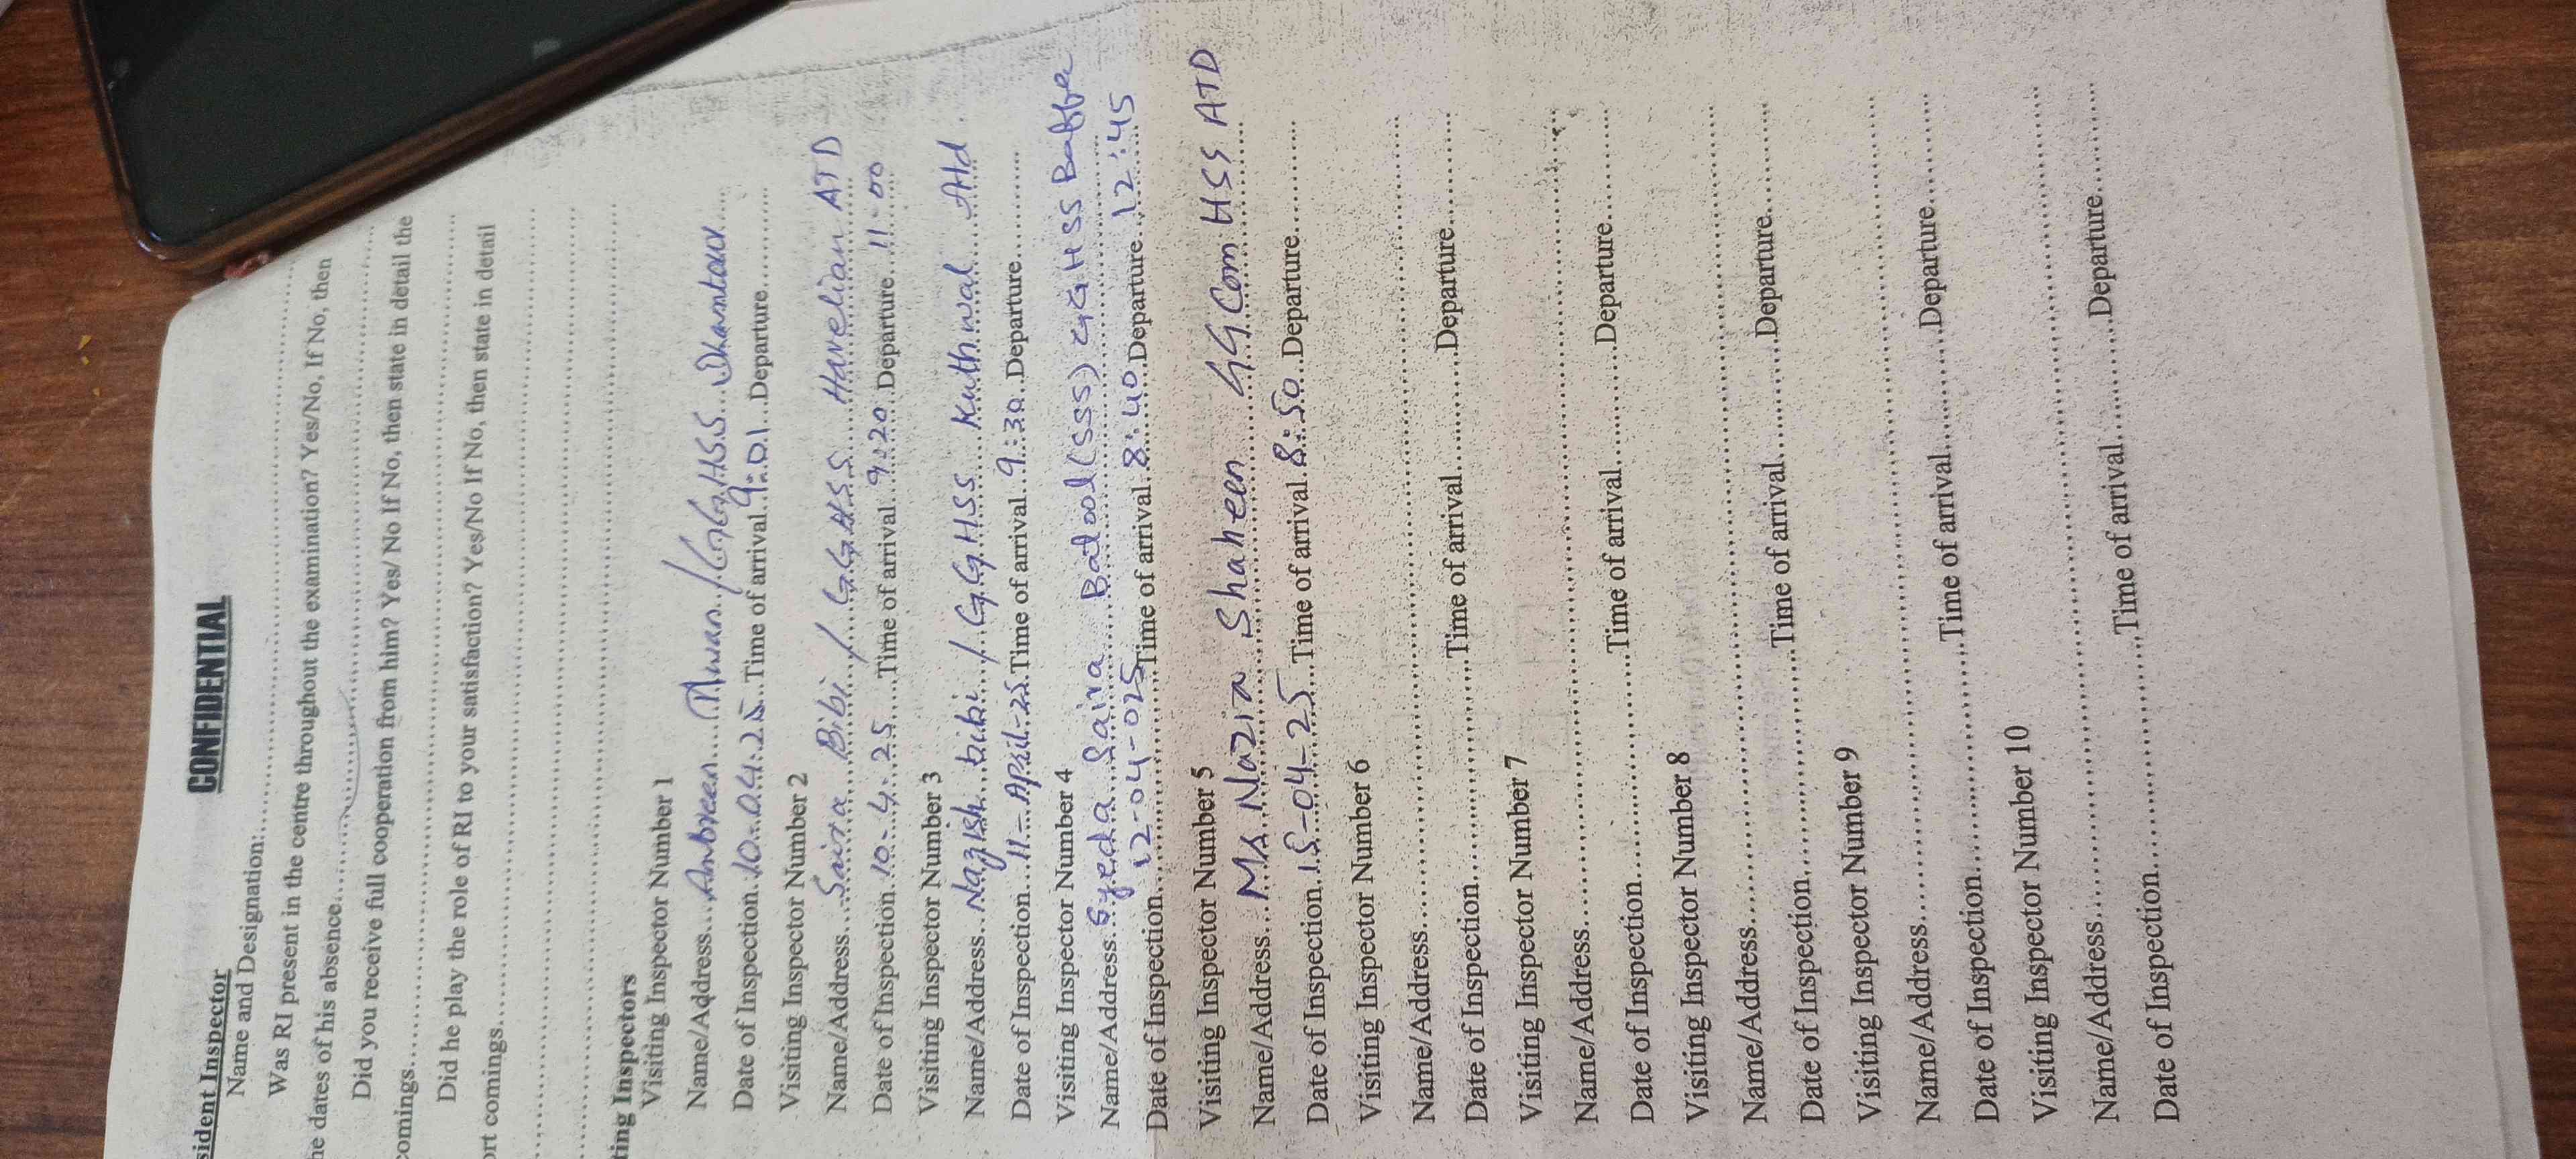 CONFIDENTIAL
sident Inspector
Name and Designation:..............................
Was RI present in the centre throughout the examination? Yes/No, If No, then
he dates of his absence..............................
Did you receive full cooperation from him? Yes/ No If No, then state in detail the
comings..............................
Did he play the role of RI to your satisfaction? Yes/No If No, then state in detail
ort comings..............................
ting Inspectors
Visiting Inspector Number 1
Name/Address...Ambreen Awan / GGHSS Dhamtour
Date of Inspection 10-04-25 Time of arrival 9:01 Departure..........
Visiting Inspector Number 2
Name/Address...Saira Bibi / G.G.H.S.S Havelian ATD
Date of Inspection 10-4-25 Time of arrival 9:20 Departure 11:00
Visiting Inspector Number 3
Name/Address...Nazish bibi / G.GHSS Kuthwal Atd
Date of Inspection...11-April-25 Time of arrival 9:30 Departure..........
Visiting Inspector Number 4
Name/Address...Syeda Saira Batool (SSS) GGHSS Baffa
Date of Inspection 12-04-025 Time of arrival 8:40 Departure 12:45
Visiting Inspector Number 5
Name/Address...Ms Nazia Shaheen GGCom HSS ATD
Date of Inspection 15-04-25 Time of arrival 8:50 Departure..........
Visiting Inspector Number 6
Name/Address..............................
Date of Inspection..........Time of arrival..........Departure..........
Visiting Inspector Number 7
Name/Address..............................
Date of Inspection..........Time of arrival..........Departure..........
Visiting Inspector Number 8
Name/Address..............................
Date of Inspection..........Time of arrival..........Departure..........
Visiting Inspector Number 9
Name/Address..............................
Date of Inspection..........Time of arrival..........Departure..........
Visiting Inspector Number 10
Name/Address..............................
Date of Inspection..........Time of arrival..........Departure..........